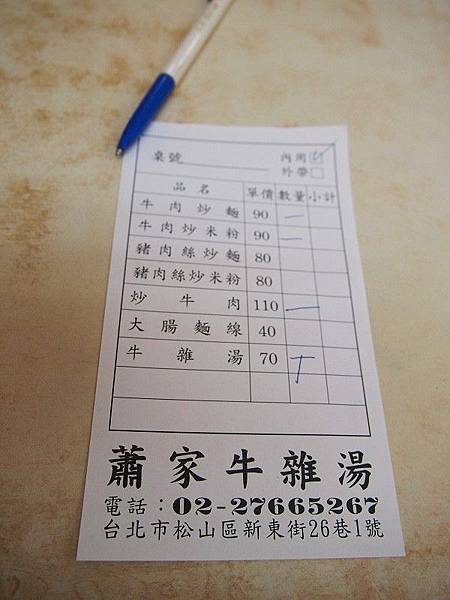 桌號 內用☑
外帶□
品名 單價 數量 小計
牛肉炒麵 90 一
牛肉炒米粉 90 一
豬肉絲炒麵 80
豬肉絲炒米粉 80
炒牛肉 110 一
大腸麵線 40
牛雜湯 70 T
蕭家牛雜湯
電話：02-27665267
台北市松山區新東街26巷1號